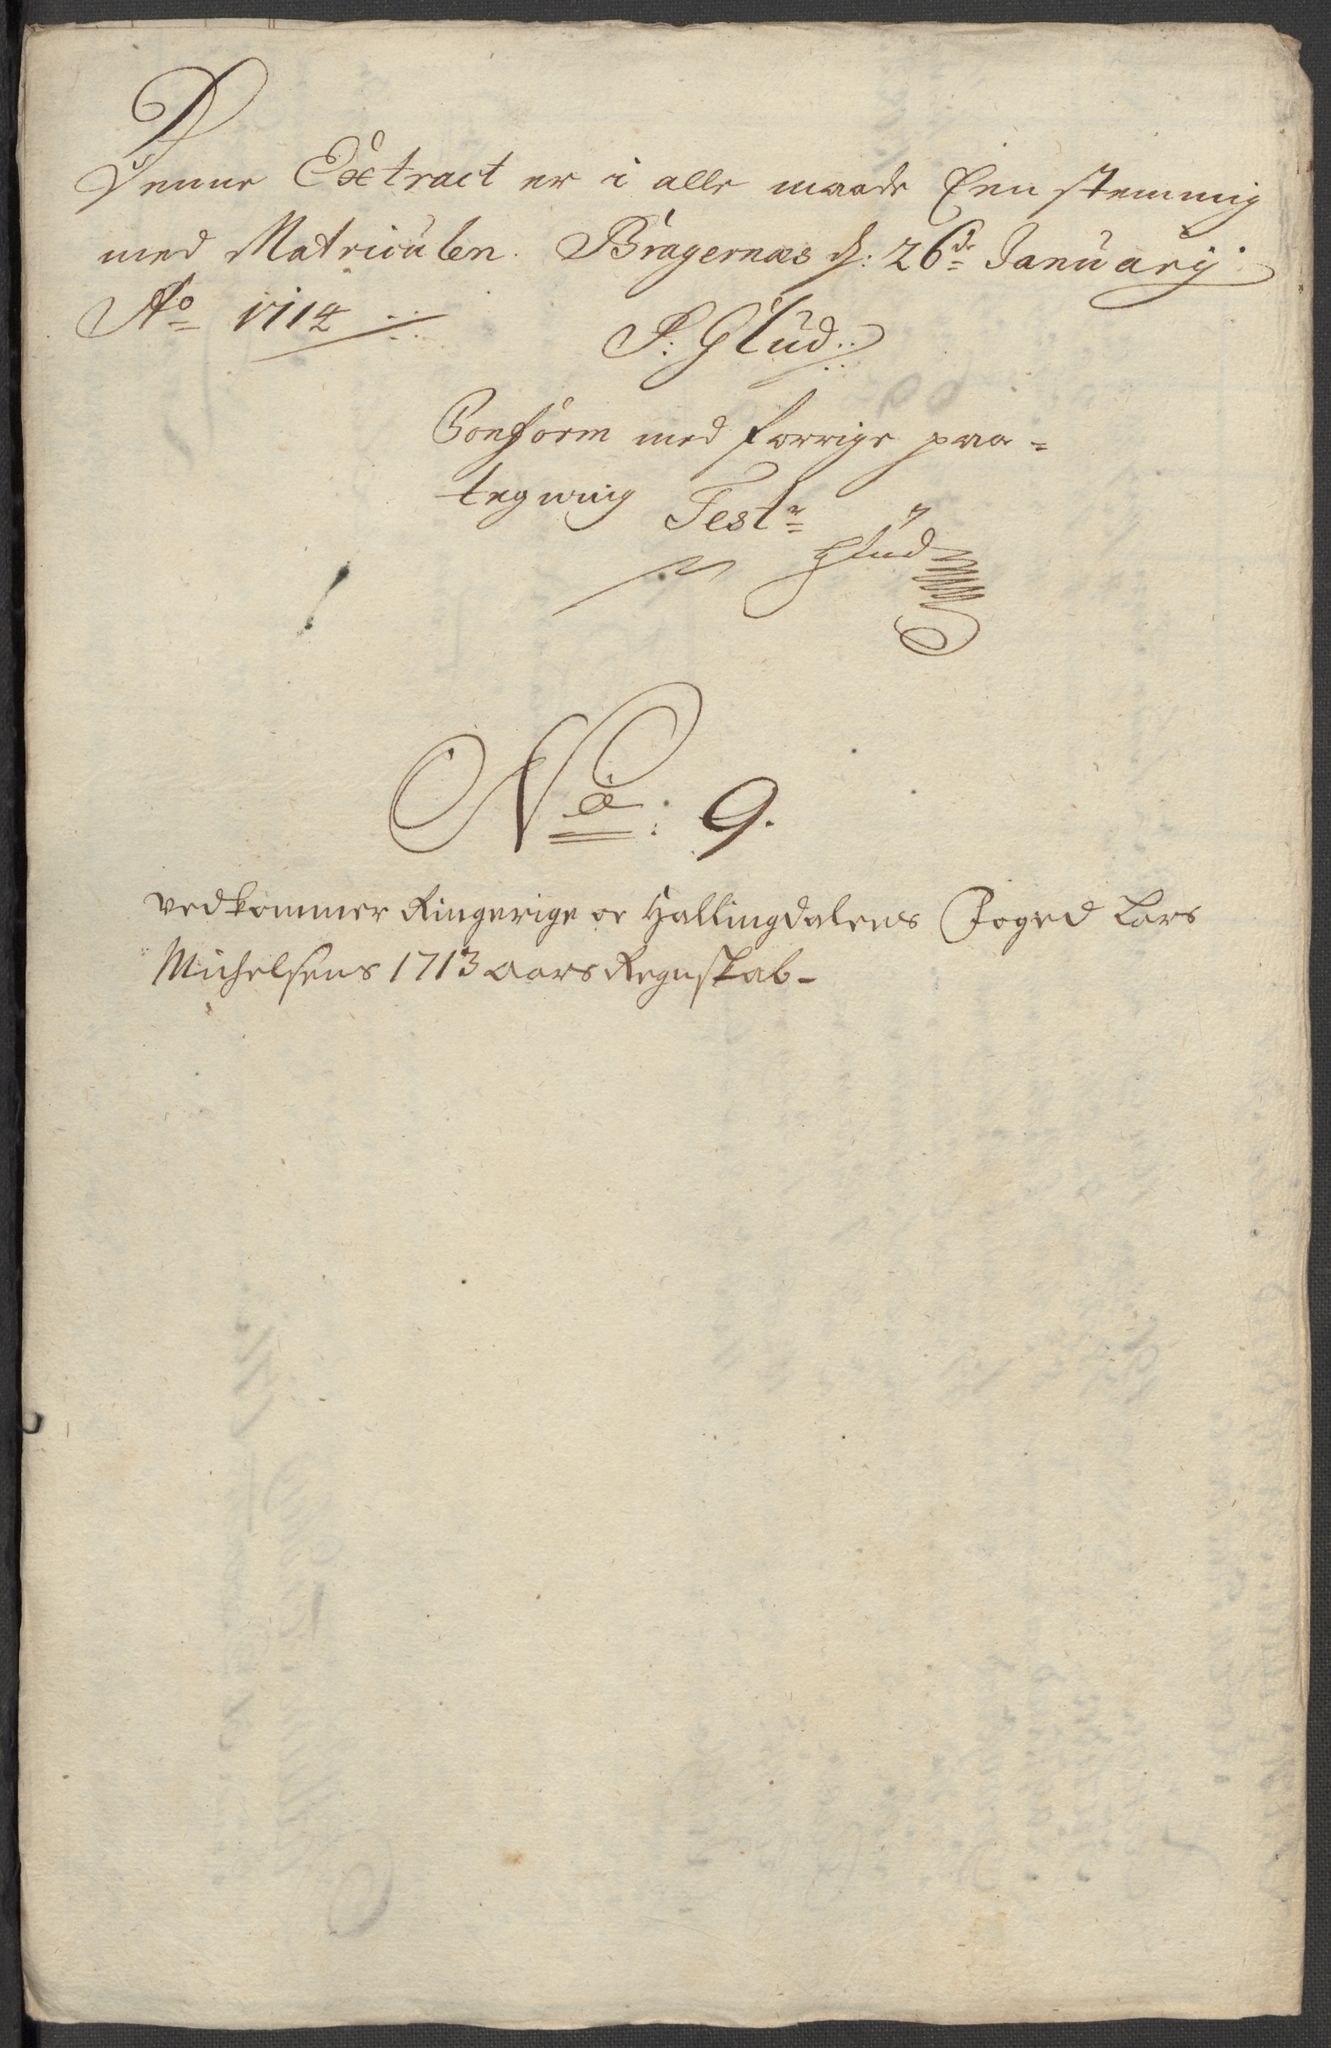 Denne Extract er i alle maade Eenstemmig
med Matriculen. Bragernæs d: 26de January
Ao 1714
P: Glud
Conform med forrige paa=
tegning Test
Glud
No: 9.
vedkommer Ringerige oc Hallingdalens Foged Lars
Michelsens 1713 aars Regnskab-